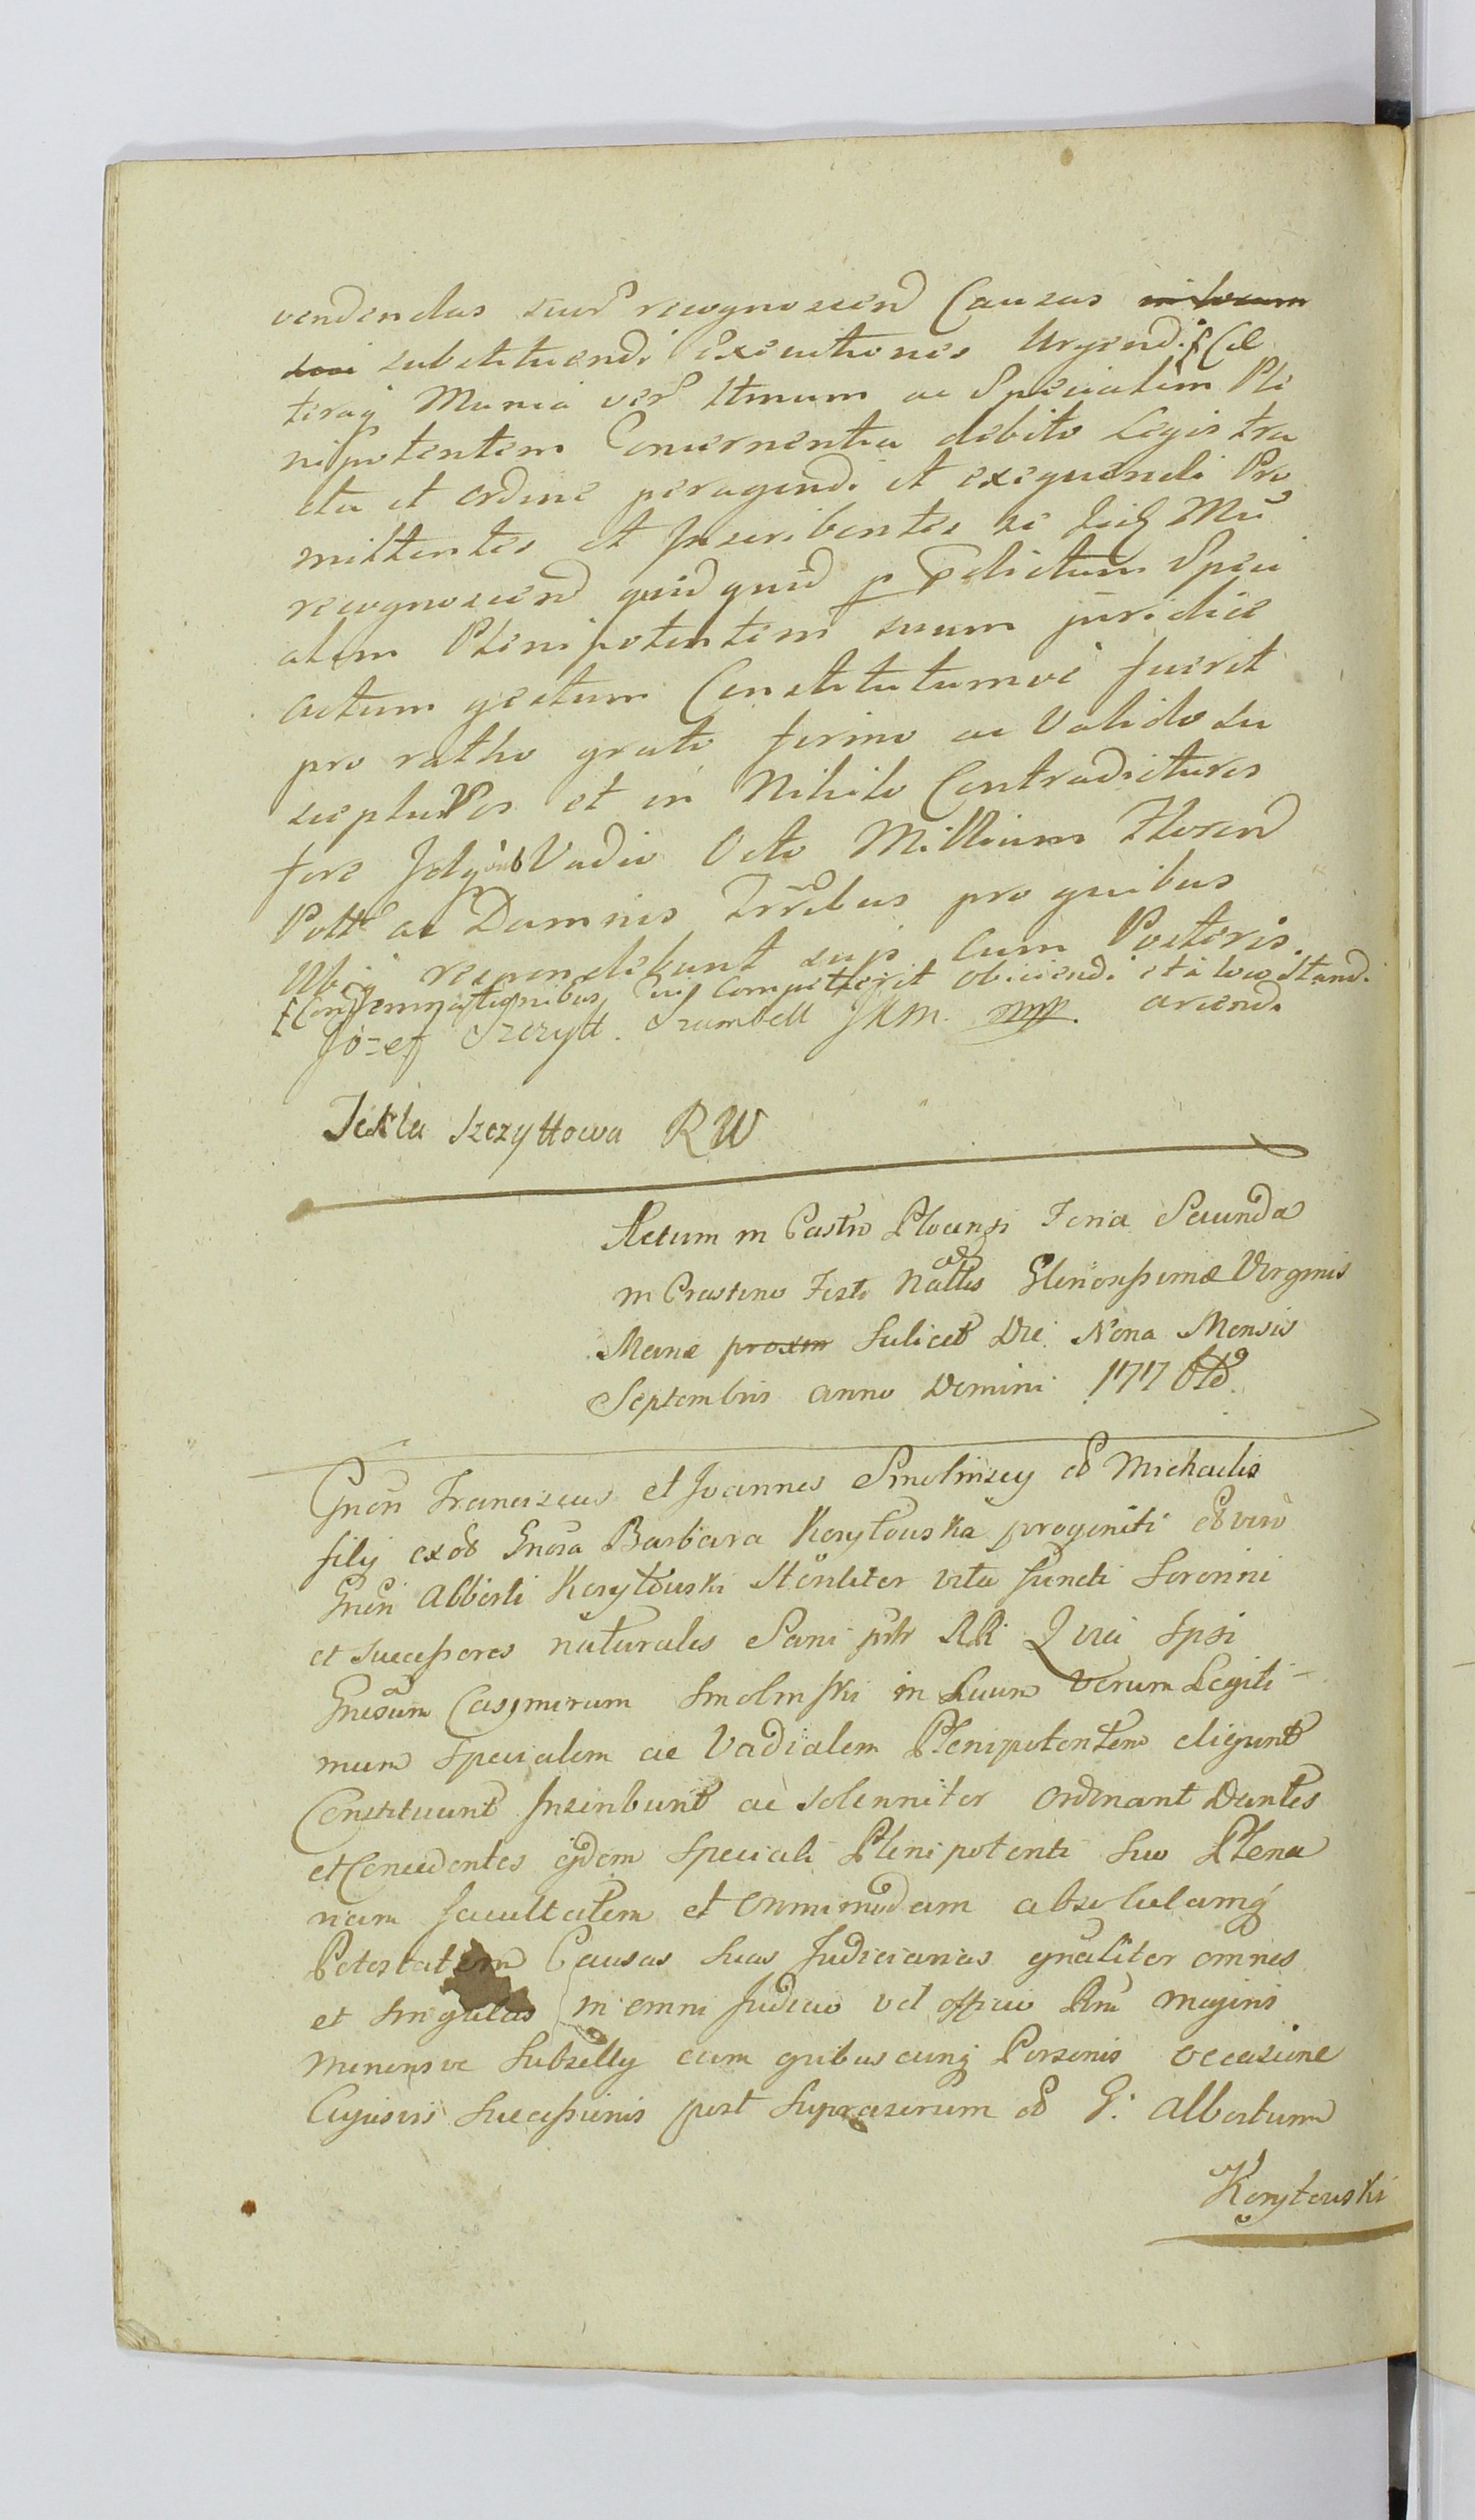 vendendas suas recognoscend Causas in locum
sui substituendi Executiones Urgendi Cae
teraq Munia ver Itmum ac Specialem Ple
nipotentem Concernentia debito Legis tra
ctu et ordine peragendi et exequendi Pro
mittentes et Inscribentes se
recognoscend quidquid p Pdictum Speci
alem Plenipotentem suum juridice
actum gestum Constitutumve fuerit
pro ratho grato firmo ac Valido su
scepturos et in Nihilo Contradicturos
fore Idq sub Vadio Octo Millium Floren
Poll ac Damnis Trribus pro quibus
Ubiq respondebunt sup cum Posteris.
Condemnationibus Cui Competierit obiiciendi et à loco Stand.
Józef Szczytt Trambell JKM mp. arcendi
Tekla Szczyttowa RW
Actum in Castro Plocensi Feria Secunda
in Crastino Festi Nattis Gloriosissimæ Virginis
Mariæ proxim Scilicet Die Nona Mensis
Septembris anno Domini 177
Gnosi Franciscus et Joannes Smolinscy od Michaelis
filij ex od Gnosa Barbara Korytowska progeniti od vero
Gnosi Alberti Korytowski Steriliter vita functi Sororini
et successores naturales Sani pntr RR Quia Ipsi
Gnosum Casimirum Smolinski in Suum Verum Legiti-
mum Specialem ac Vadialem Plenipotentem eligunt
Constituunt Inscribunt ac solenniter ordinant Dantes
et Concedentes ejdem Speciali Plenipotenti Suo Plena
riam facultatem et Omnimodam absolutamq
Potestatem Causas Suas Judiciarias gnaliter omnes
et singulas in omni Judicio vel officio Rni majoris
minorisve Subsellij cum quibuscunq Personis occasione
Cujusvis Successionis post Suprascrium od G: Albertum
Korytowski